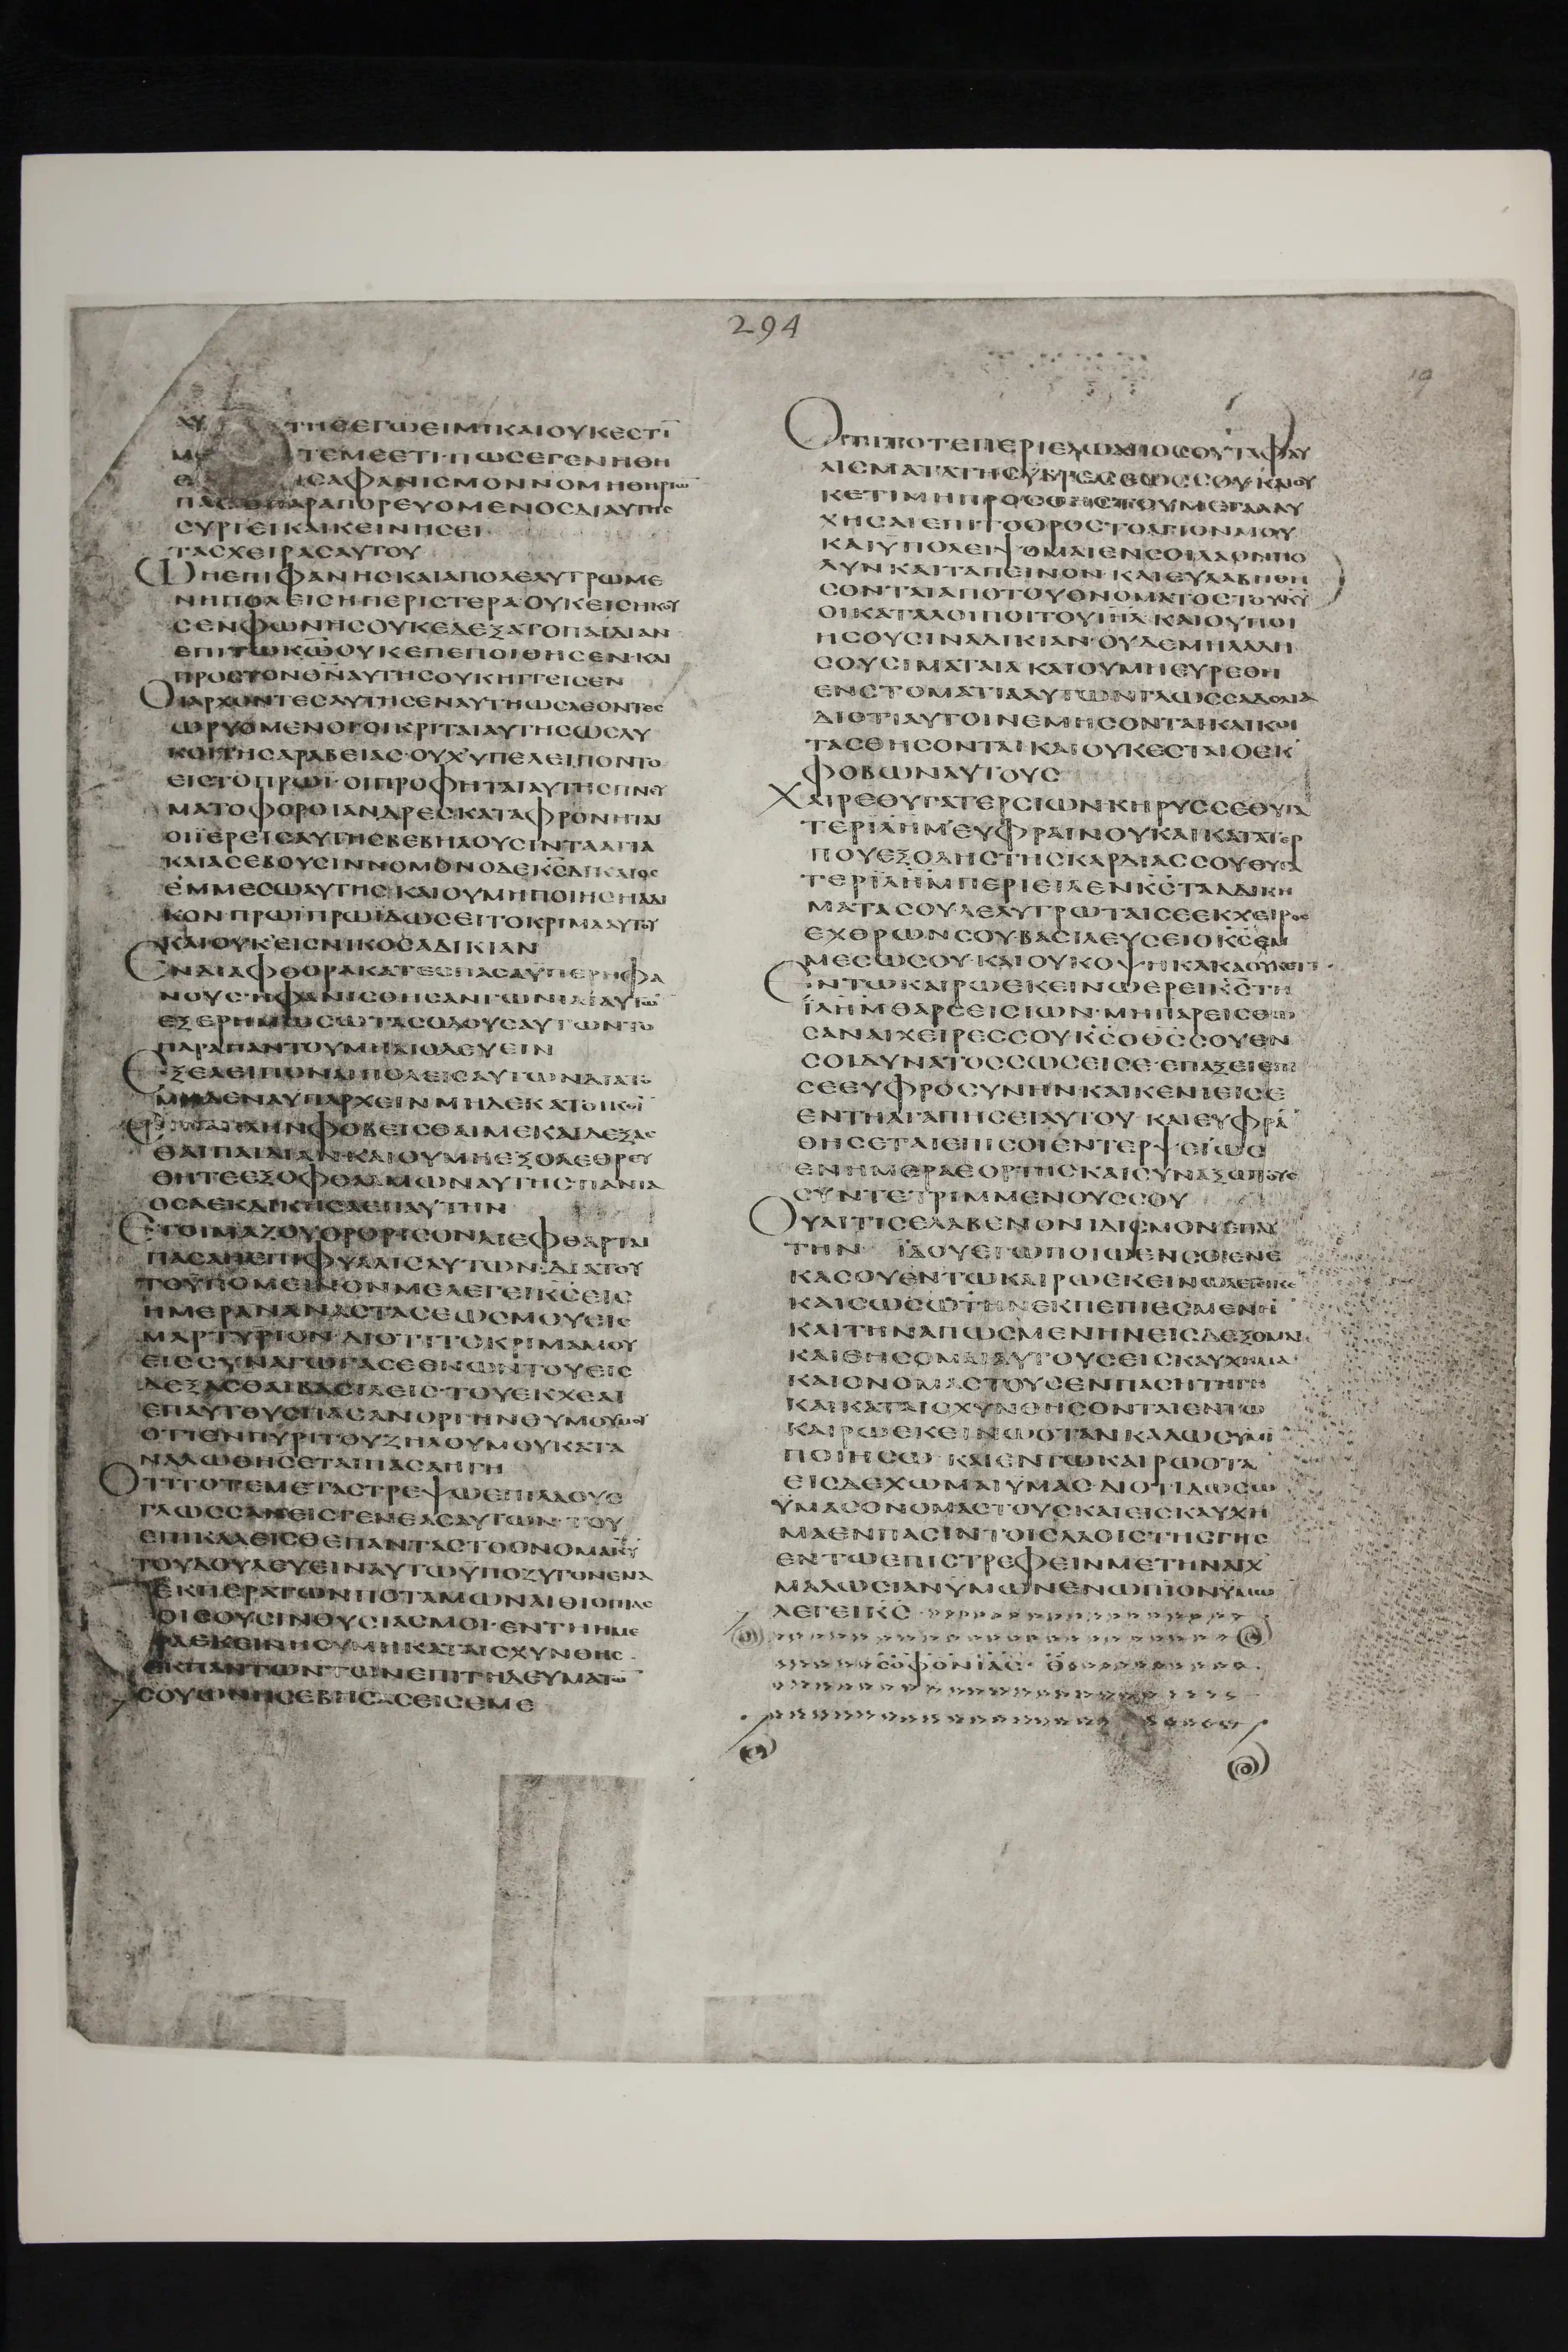 294
19
ΤΗΣΕΓΩΕΙΜΙΚΑΙΟΥΚΕΣΤΙ
ΤΕΜΕΕΤΙ·ΠΩΣΕΓΕΝΗΘΗ
ΙΣΑΦΑΝΙΣΜΟΝΝΟΜΗΘΗΡΙΩ
ΠΑΣΟΠΑΡΑΠΟΡΕΥΟΜΕΝΟΣΔΙΑΥΤΗΣ
ΣΥΡΙΕΙΚΑΙΚΕΙΝΗΣΕΙ
ΤΑΣΧΕΙΡΑΣΑΥΤΟΥ
ΩΗΕΠΙΦΑΝΗΣΚΑΙΑΠΟΛΕΛΥΤΡΩΜΕ
ΝΗΠΟΛΕΙΣΗΠΕΡΙΣΤΕΡΑΟΥΚΕΙΣΗΚΟΥ
ΣΕΝΦΩΝΗΣΟΥΚΕΔΕΞΑΤΟΠΑΙΔΙΑΝ
ΕΠΙΤΩΚΩΟΥΚΕΠΕΠΟΙΘΗΣΕΝ·ΚΑΙ
ΠΡΟΣΤΟΝΘΝΑΥΤΗΣΟΥΚΗΓΓΕΙΣΕΝ
ΟΙΑΡΧΟΝΤΕΣΑΥΤΗΣΕΝΑΥΤΗΩΣΛΕΟΝΤΕΣ
ΩΡΥΟΜΕΝΟΙΟΙΚΡΙΤΑΙΑΥΤΗΣΩΣΛΥ
ΚΟΙΤΗΣΑΡΑΒΕΙΑΣ·ΟΥΧΥΠΕΛΕΙΠΟΝΤΟ
ΕΙΣΤΟΠΡΩΙ·ΟΙΠΡΟΦΗΤΑΙΑΥΤΗΣΠΝΕΥ
ΜΑΤΟΦΟΡΟΙΑΝΔΡΕΣΚΑΤΑΦΡΟΝΗΤΑΙ
ΟΙΙΕΡΕΙΣΑΥΤΗΣΒΕΒΗΛΟΥΣΙΝΤΑΑΓΙΑ
ΚΑΙΑΣΕΒΟΥΣΙΝΝΟΜΟΝΟΔΕΚΣΔΙΚΑΙΟΣ
ΕΜΜΕΣΩΑΥΤΗΣ·ΚΑΙΟΥΜΗΠΟΙΗΣΗΑΔΙ
ΚΟΝΠΡΩΙΠΡΩΙΔΩΣΕΙΤΟΚΡΙΜΑΑΥΤΟΥ
ΚΑΙΟΥΚΕΙΣΝΙΚΟΣΑΔΙΚΙΑΝ
ΕΝΔΙΑΦΘΟΡΑΚΑΤΕΣΠΑΣΑΥΠΕΡΗΦΑ
ΝΟΥΣ·ΗΦΑΝΙΣΘΗΣΑΝΓΩΝΙΑΙΑΥΤΩ
ΕΞΕΡΗΜΩΣΩΤΑΣΟΔΟΥΣΑΥΤΩΝΤΟ
ΠΑΡΑΠΑΝΤΟΥΜΗΔΙΟΔΕΥΕΙΝ
ΕΞΕΛΕΙΠΟΝΑΙΠΟΛΕΙΣΑΥΤΩΝΔΙΑΤΟ
ΜΗΔΕΝΑΥΠΑΡΧΕΙΝΜΗΔΕΚΑΤΟΙΚΕΙ
ΠΛΗΝΦΟΒΕΙΣΘΑΙΜΕΚΑΙΔΕΞΑΣ
ΘΑΙΠΑΙΔΙΑΝ·ΚΑΙΟΥΜΗΕΞΟΛΕΘΡΕΥ
ΘΗΤΕΕΞΟΦΘΑΛΜΩΝΑΥΤΗΣΠΑΝΤΑ
ΟΣΑΕΚΔΙΚΗΣΑΕΠΑΥΤΗΝ
ΕΤΟΙΜΑΖΟΥΟΡΘΡΙΣΟΝΔΙΕΦΘΑΡΤΑΙ
ΠΑΣΑΗΕΠΙΦΥΛΛΙΣΑΥΤΩΝ·ΔΙΑΤΟΥ
ΤΟΥΠΟΜΕΙΝΟΝΜΕΛΕΓΕΙΚΣΕΙΣ
ΗΜΕΡΑΝΑΝΑΣΤΑΣΕΩΣΜΟΥΕΙΣ
ΜΑΡΤΥΡΙΟΝ·ΔΙΟΤΙΤΟΚΡΙΜΑΜΟΥ
ΕΙΣΣΥΝΑΓΩΓΑΣΕΘΝΩΝΤΟΥΕΙΣ
ΔΕΞΑΣΘΑΙΒΑΣΙΛΕΙΣ·ΤΟΥΕΚΧΕΑΙ
ΕΠΑΥΤΟΥΣΠΑΣΑΝΟΡΓΗΝΘΥΜΟΥΜΟΥ
ΟΤΙΕΝΠΥΡΙΤΟΥΖΗΛΟΥΜΟΥΚΑΤΑ
ΝΑΛΩΘΗΣΕΤΑΙΠΑΣΑΗΓΗ
ΟΤΙΤΟΤΕΜΕΤΑΣΤΡΕΨΩΕΠΙΛΑΟΥΣ
ΓΛΩΣΣΑΝΕΙΣΓΕΝΕΑΣΑΥΤΩΝ·ΤΟΥ
ΕΠΙΚΑΛΕΙΣΘΕΠΑΝΤΑΣΤΟΟΝΟΜΑΚΥ
ΤΟΥΔΟΥΛΕΥΕΙΝΑΥΤΩΥΠΟΖΥΓΟΝΕΝΑ
ΕΚΠΕΡΑΤΩΝΠΟΤΑΜΩΝΑΙΘΙΟΠΙΑΣ
ΟΙΣΟΥΣΙΝΘΥΣΙΑΣΜΟΙ·ΕΝΤΗΗΜΕ
ΡΑΕΚΕΙΝΗΟΥΜΗΚΑΤΑΙΣΧΥΝΘΗΣ
ΕΚΠΑΝΤΩΝΤΩΝΕΠΙΤΗΔΕΥΜΑΤΩ
ΣΟΥΩΝΗΣΕΒΗΣΑΣΕΙΣΕΜΕ
ΟΤΙΤΟΤΕΠΕΡΙΕΛΩΑΠΟΣΟΥΤΑΦΑΥ
ΛΙΣΜΑΤΑΤΗΣΥΒΡΕΩΣΣΟΥ·ΚΑΙΟΥ
ΚΕΤΙΜΗΠΡΟΣΘΗΣΤΟΥΜΕΓΑΛΑΥ
ΧΗΣΑΙΕΠΙΤΟΟΡΟΣΤΟΑΓΙΟΝΜΟΥ
ΚΑΙΥΠΟΛΕΙΨΟΜΑΙΕΝΣΟΙΛΑΟΝΠΟ
ΛΥΝΚΑΙΤΑΠΕΙΝΟΝ·ΚΑΙΕΥΛΑΒΗΘΗ
ΣΟΝΤΑΙΑΠΟΤΟΥΟΝΟΜΑΤΟΣΤΟΥΚΥ
ΟΙΚΑΤΑΛΟΙΠΟΙΤΟΥΙΗΛ·ΚΑΙΟΥΠΟΙ
ΗΣΟΥΣΙΝΑΔΙΚΙΑΝ·ΟΥΔΕΜΗΛΑΛΗ
ΣΟΥΣΙΜΑΤΑΙΑ·ΚΑΙΟΥΜΗΕΥΡΕΘΗ
ΕΝΣΤΟΜΑΤΙΑΥΤΩΝΓΛΩΣΣΑΔΟΛΙΑ
ΔΙΟΤΙΑΥΤΟΙΝΕΜΗΣΟΝΤΑΙΚΑΙΚΟΙ
ΤΑΣΘΗΣΟΝΤΑΙ·ΚΑΙΟΥΚΕΣΤΑΙΟΕΚ
ΦΟΒΩΝΑΥΤΟΥΣ
ΧΑΙΡΕΘΥΓΑΤΕΡΣΙΩΝΚΗΡΥΣΣΕΘΥΓΑ
ΤΕΡΙΛΗΜ·ΕΥΦΡΑΙΝΟΥΚΑΙΚΑΤΑΤΕΡ
ΠΟΥΕΞΟΛΗΣΤΗΣΚΑΡΔΙΑΣΣΟΥΘΥΓΑ
ΤΕΡΙΛΗΜ·ΠΕΡΙΕΙΛΕΝΚΣΤΑΑΔΙΚΗ
ΜΑΤΑΣΟΥ·ΛΕΛΥΤΡΩΤΑΙΣΕΕΚΧΕΙΡΟΣ
ΕΧΘΡΩΝΣΟΥΒΑΣΙΛΕΥΣΕΙΟΚΣΕΜ
ΜΕΣΩΣΟΥ·ΚΑΙΟΥΚΟΨΗΚΑΚΑΟΥΚΕΤΙ
ΕΝΤΩΚΑΙΡΩΕΚΕΙΝΩΕΡΕΙΚΣΤΗ
ΙΛΗΜΘΑΡΣΕΙΣΙΩΝ·ΜΗΠΑΡΕΙΣΘΩ
ΣΑΝΑΙΧΕΙΡΕΣΣΟΥΚΣΟΘΣΣΟΥΕΝ
ΣΟΙΔΥΝΑΤΟΣΣΩΣΕΙΣΕ·ΕΠΑΞΕΙΕΠΙ
ΣΕΕΥΦΡΟΣΥΝΗΝΚΑΙΚΕΝΙΕΙΣΕ
ΕΝΤΗΑΓΑΠΗΣΕΙΑΥΤΟΥ·ΚΑΙΕΥΦΡΑ
ΘΗΣΕΤΑΙΕΠΙΣΟΙΕΝΤΕΡΨΕΙΩΣ
ΕΝΗΜΕΡΑΕΟΡΤΗΣΚΑΙΣΥΝΑΞΩΤΟΥΣ
ΣΥΝΤΕΤΡΙΜΜΕΝΟΥΣΣΟΥ
ΟΥΑΙΤΙΣΕΛΑΒΕΝΟΝΙΔΙΣΜΟΝΕΠΑΥ
ΤΗΝ ΙΔΟΥΕΓΩΠΟΙΩΕΝΣΟΙΕΝΕ
ΚΑΣΟΥΕΝΤΩΚΑΙΡΩΕΚΕΙΝΩΛΕΓΕΙΚΣ
ΚΑΙΣΩΣΩΤΗΝΕΚΠΕΠΙΕΣΜΕΝΗ
ΚΑΙΤΗΝΑΠΩΣΜΕΝΗΝΕΙΣΔΕΞΟΜΑΙ
ΚΑΙΘΗΣΟΜΑΙΑΥΤΟΥΣΕΙΣΚΑΥΧΗΜΑ
ΚΑΙΟΝΟΜΑΣΤΟΥΣΕΝΠΑΣΗΤΗΓΗ
ΚΑΙΚΑΤΑΙΣΧΥΝΘΗΣΟΝΤΑΙΕΝΤΩ
ΚΑΙΡΩΕΚΕΙΝΩΟΤΑΝΚΑΛΩΣΥΜΙ
ΠΟΙΗΣΩ·ΚΑΙΕΝΤΩΚΑΙΡΩΟΤΑ
ΕΙΣΔΕΧΩΜΑΙΥΜΑΣ·ΔΙΟΤΙΔΩΣΩ
ΥΜΑΣΟΝΟΜΑΣΤΟΥΣΚΑΙΕΙΣΚΑΥΧΗ
ΜΑΕΝΠΑΣΙΝΤΟΙΣΛΑΟΙΣΤΗΣΓΗΣ
ΕΝΤΩΕΠΙΣΤΡΕΦΕΙΝΜΕΤΗΝΑΙΧ
ΜΑΛΩΣΙΑΝΥΜΩΝΕΝΩΠΙΟΝΥΜΩ
ΛΕΓΕΙΚΣ
ΣΟΦΟΝΙΑΣ·Θ